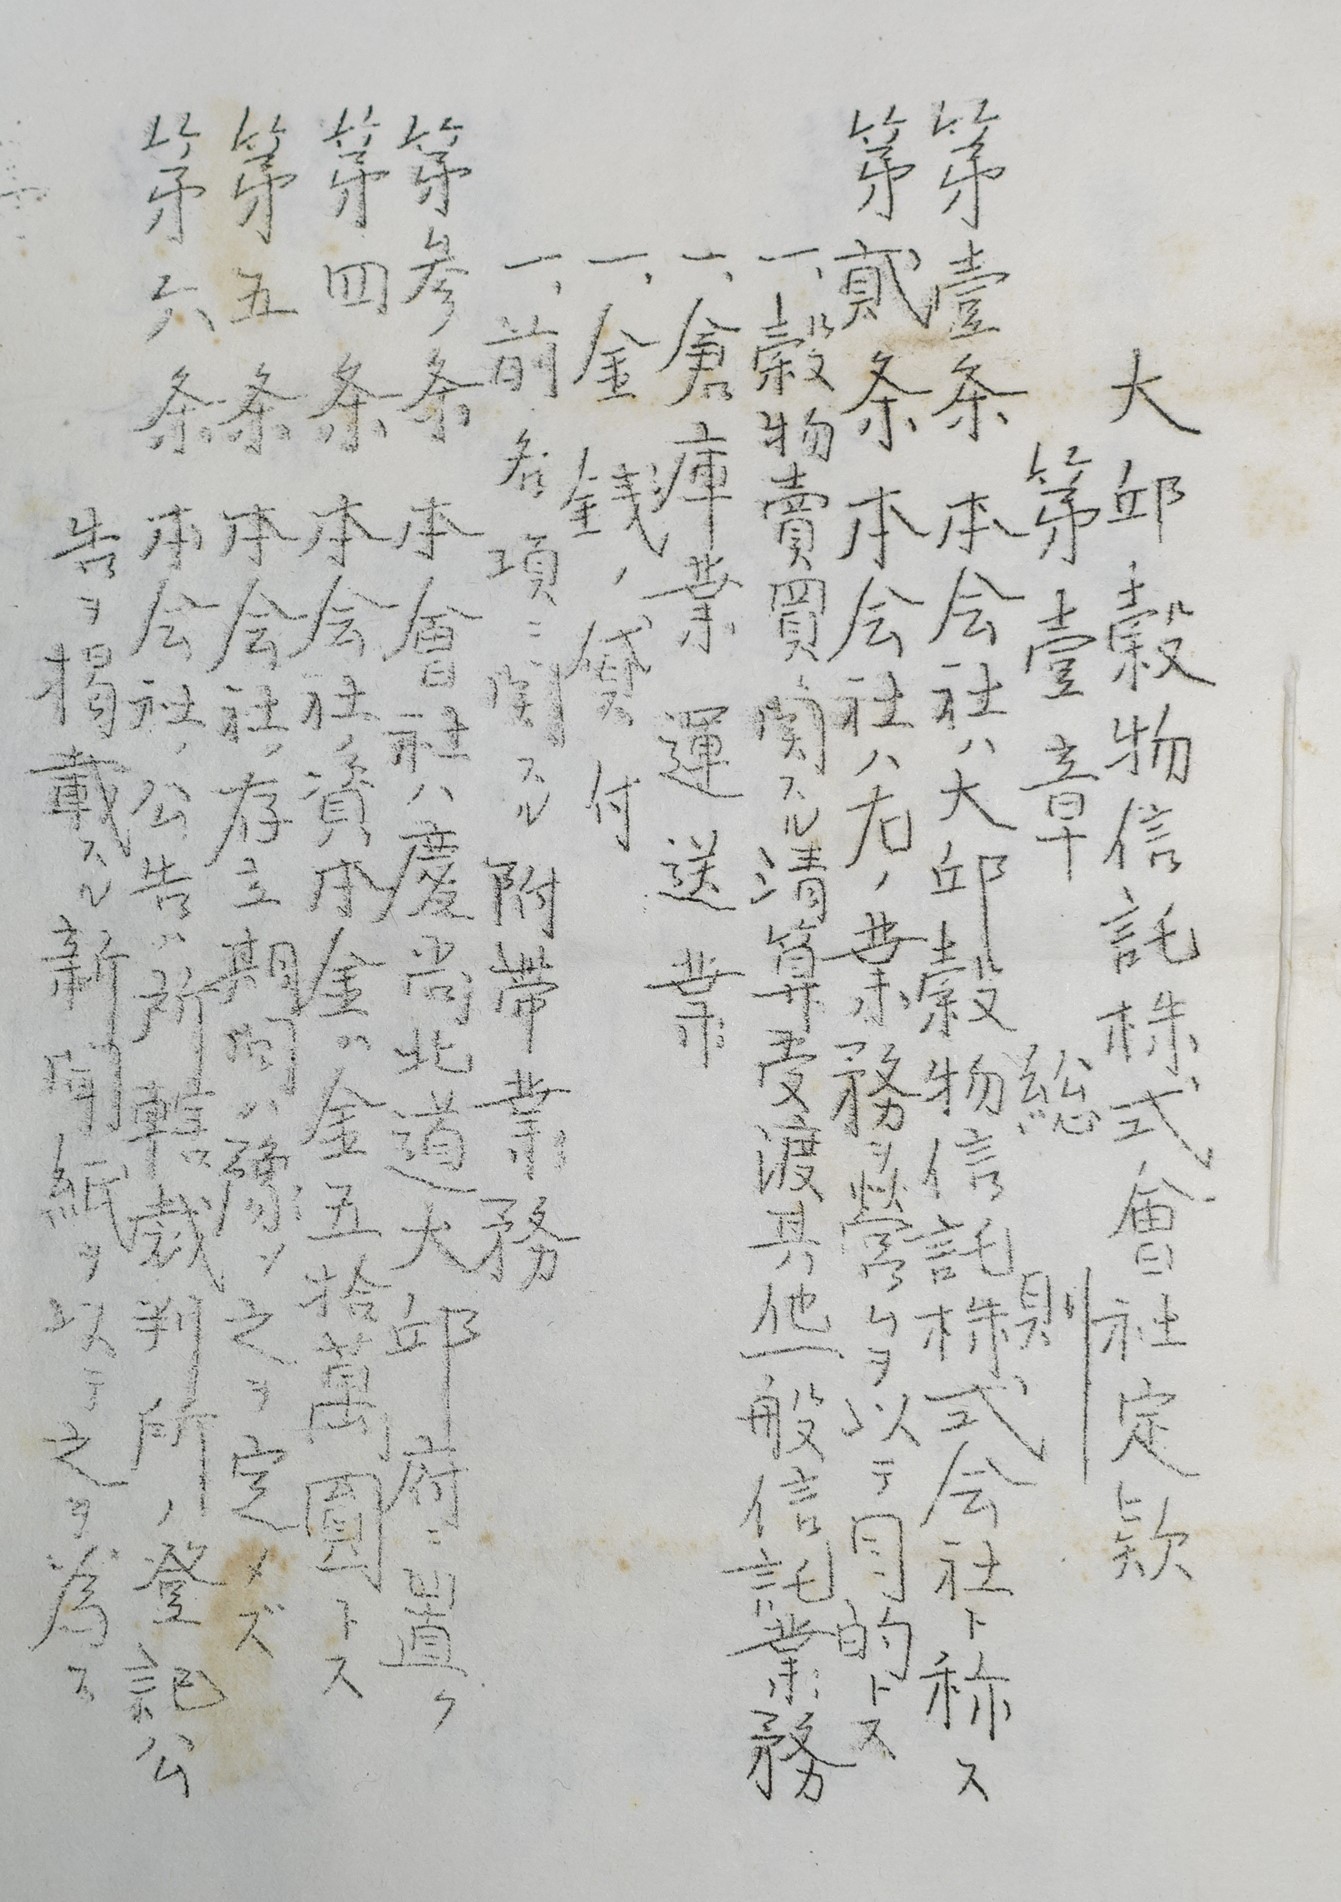 大邱穀物信託株式會社定款
第壹章 総則
第壹条 本会社ハ大邱穀物信託株式会社ト称ス
第貳条 本会社ハ右ノ業務ヲ營ムヲ以テ目的トス
一、穀物賣買ニ関スル清算受渡其他一般信託業務
一、倉庫業 運送業
一、金銭ノ貸付
一、前各項ニ関スル附帯業務
第参条 本會社ハ慶尚北道大邱府ニ置ク
第四条 本会社ノ資本金ハ金五拾萬圓トス
第五条 本会社ノ存立期間ハ豫メ之ヲ定メズ
第六条 本会社ノ公告ハ所轄裁判所ノ登記公
告ヲ掲載スル新聞紙ヲ以テ之ヲ為ス